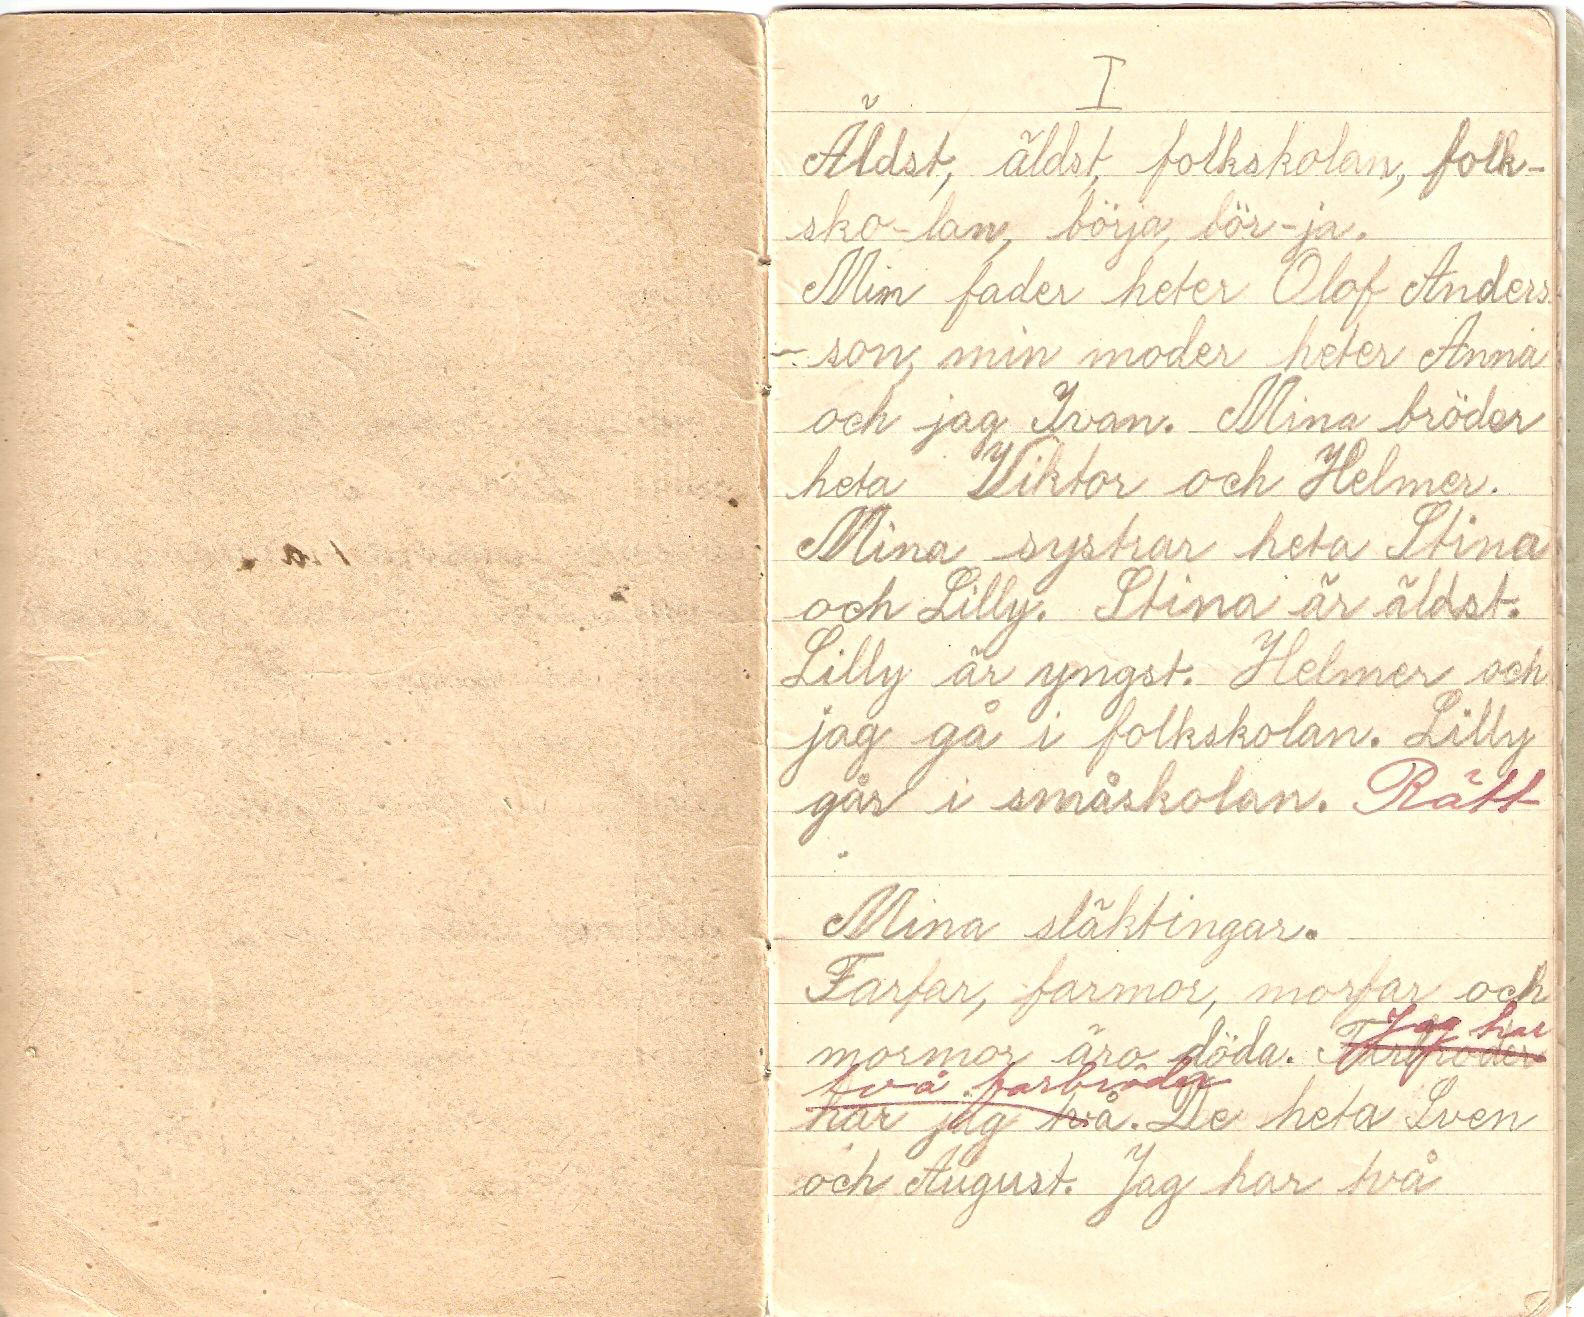 I
Äldst, äldst, folkskolan, folk-
sko-lan, börja, bör-ja.
Min fader heter Olof Anders
- son, min moder heter Anna
och jag Ivan. Mina bröder
heta Viktor och Helmer.
Mina systrar heta Stina
och Lilly. Stina är äldst.
Lilly är yngst. Helmer och
jag gå i folkskolan. Lilly
går i småskolan. Rätt
Mina släktingar.
Farfar, farmor, morfar och
Jag har
mormor äro döda. Farbröder
två farbröder
har jag två. De heta Sven
och August. Jag har två